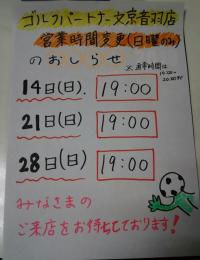 ゴルフパートナー文京音羽店
営業時間変更(日曜のみ)
のおしらせ
※通常時間は
14日(日). 19:00
21日(日) 19:00
28日(日) 19:00
みなさまの
ご来店をお待ちしております!